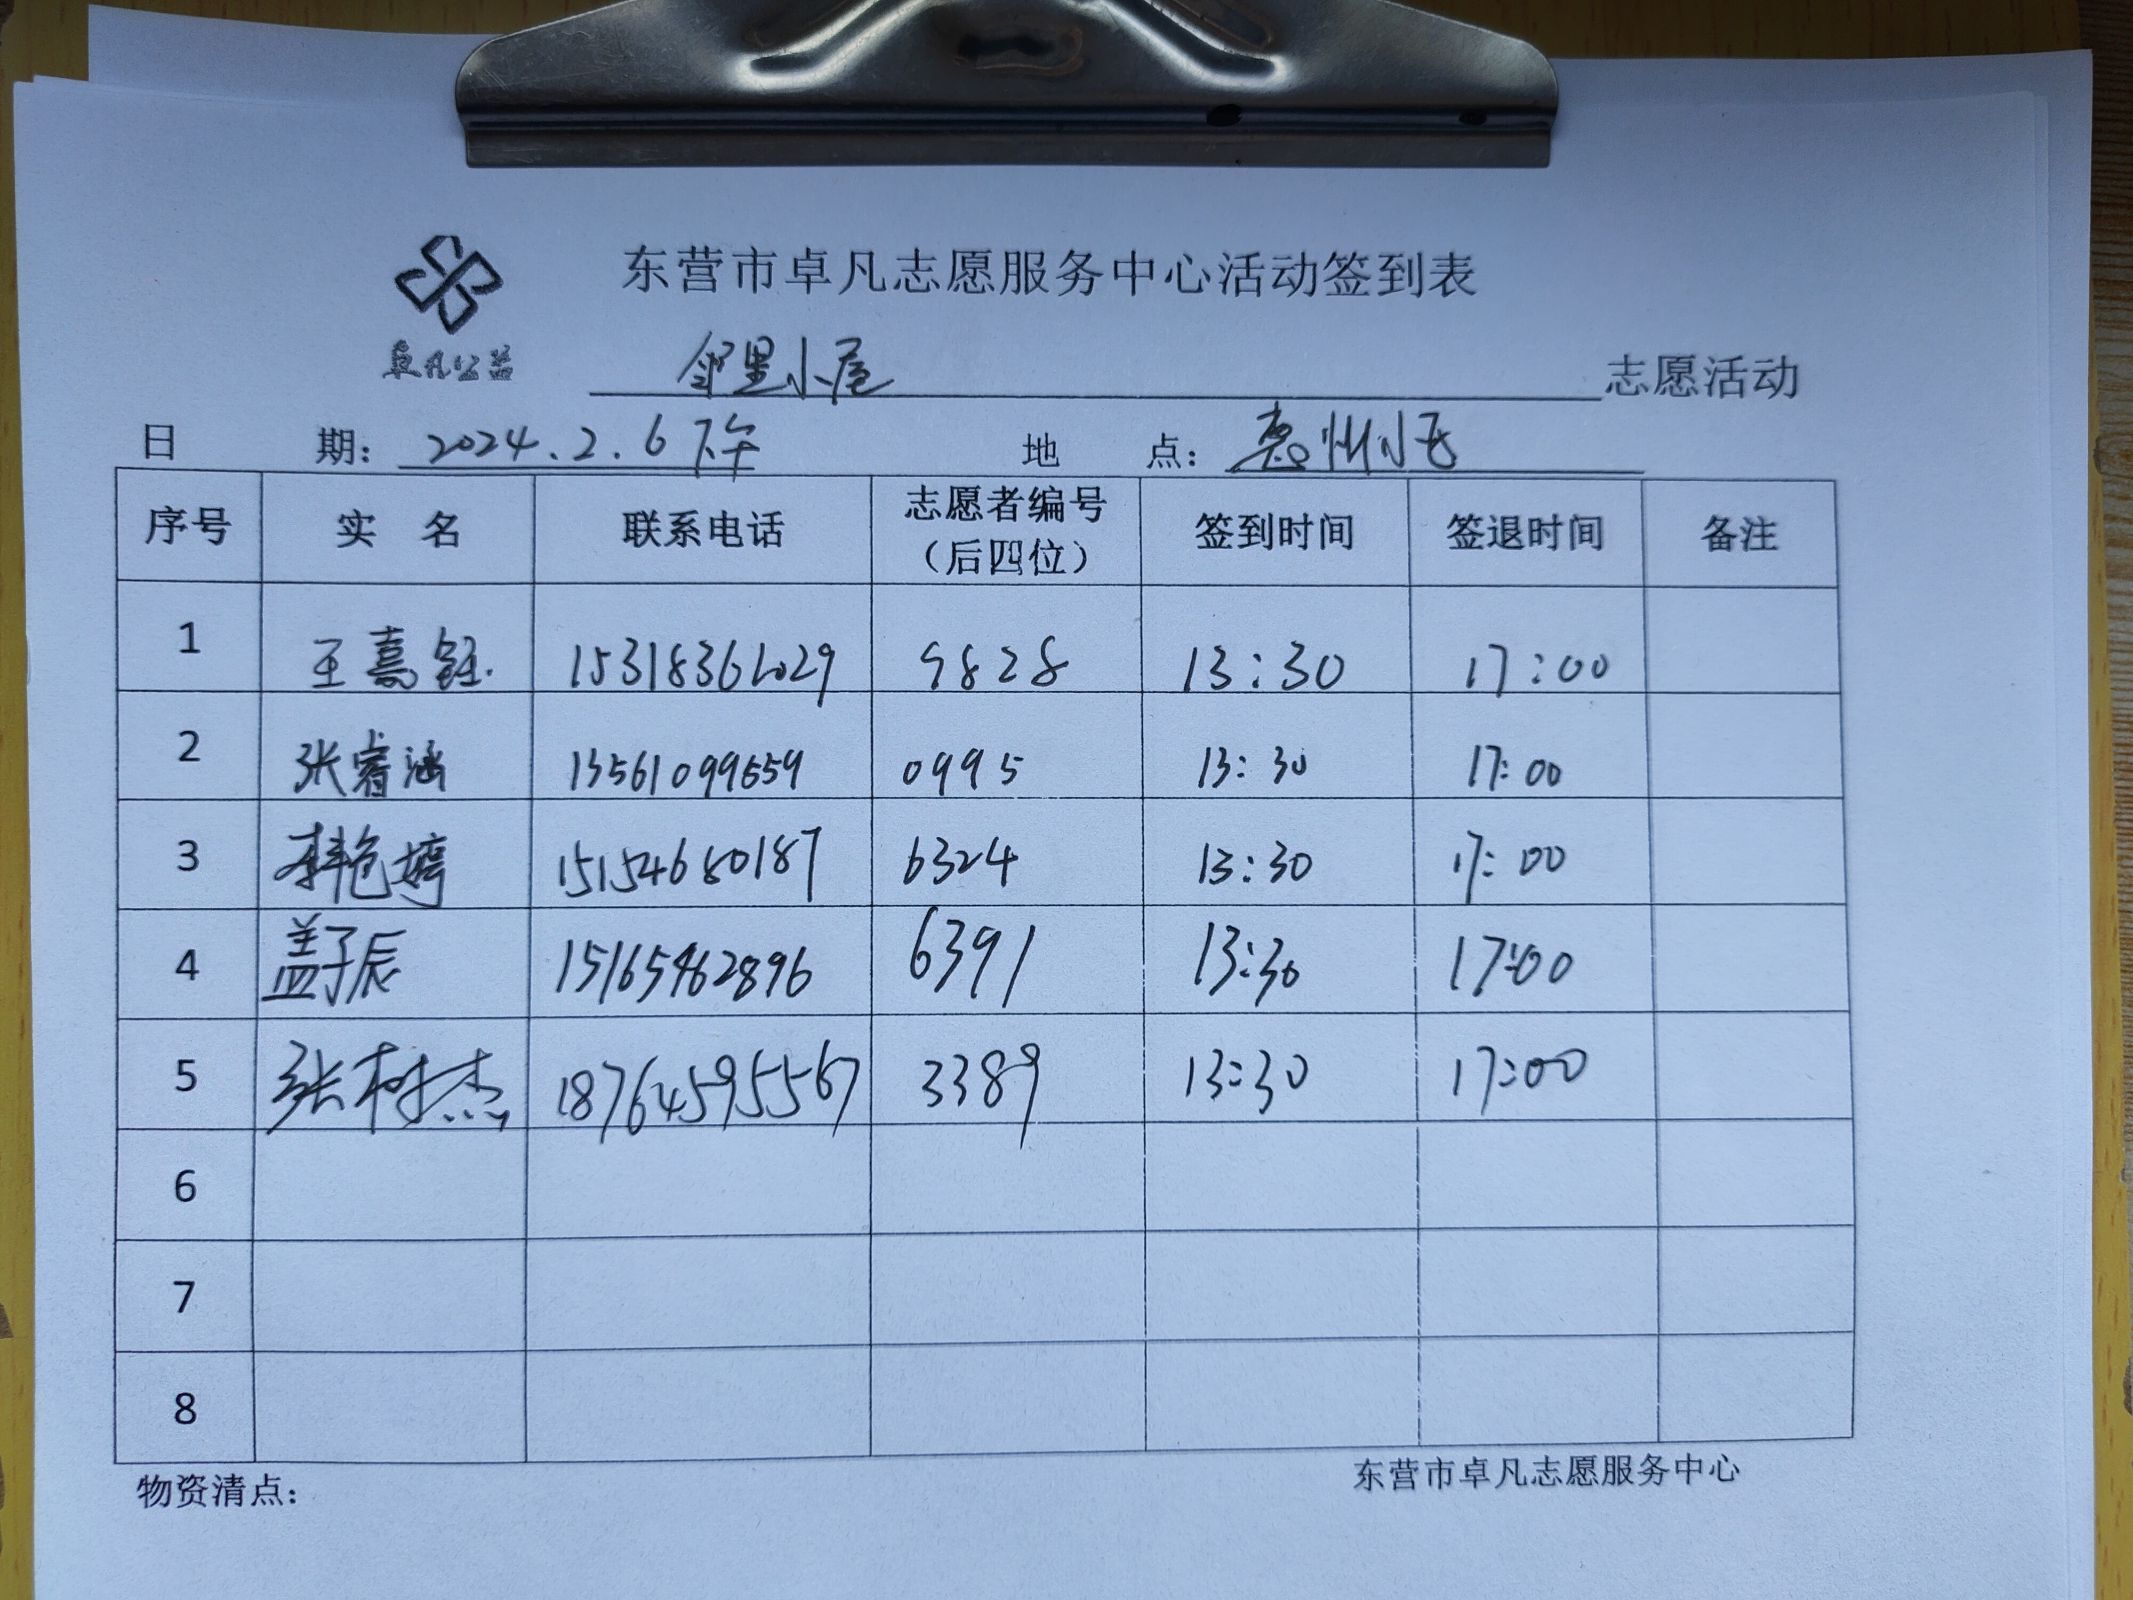 东营市卓凡志愿服务中心活动签到表
卓凡公益
邻里小屋 志愿活动
日 期： 2024.2.6下午 地 点： 惠州小区
序号 实 名 联系电话 志愿者编号（后四位） 签到时间 签退时间 备注
1 王嘉钰 15318361029 9828 13:30 17:00
2 张睿涵 13561099659 0995 13:30 17:00
3 15154680187 6324 13:30 17:00
4 盖子辰 15165462896 6391 13:30 17:00
5 张树杰 18764595567 3389 13:30 17:00
6
7
8
物资清点： 东营市卓凡志愿服务中心